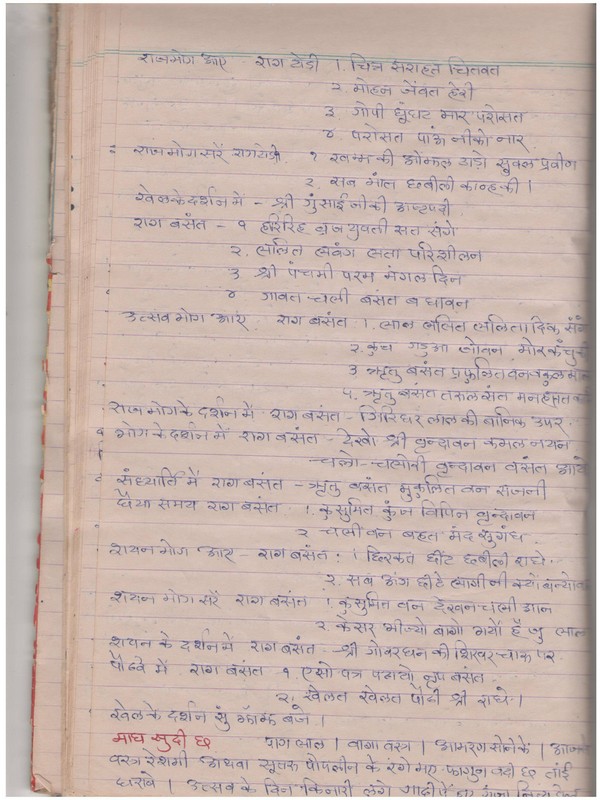 राजभोग आए - राग टोडी । चित्र सराहत चितवत
२. मोहन जेंवत हेरी
३. गोपी घुंघट मार परोसत
४ परोसत पाऊं नीको नार.
राजभोग सरें राग टोडी. १ खम्भ की ओंझल ठाडो सुबल प्रवीण
२. सब भांत छबीली कान्ह की ।
खेल के दर्शन में - श्री गुंसाईजी की अष्टपदी.
राग बसंत - १ हरिरिह ब्रज युवती सत संगे
२. ललित लवंग लता परिशीलन
३ श्री पंचमी परम मंगल दिन
४ गावत चली बसंत बधावन
उत्सव भोग आए. राग बसंत । लाल ललित ललितादिक संग
२. कुच गडुआ जोवन मोर
३ ऋतु बसंत प्रफुलित वन बकुल
५. ऋतु बसंत तरुलसंत मन हसत
राजभोग के दर्शन में राग बसंत - गिरिधर लाल की बानिक उपर.
भोग के दर्शन में राग बसंत - देखो श्री वृन्दावन कमल नयन
चलो-चलोरी वृन्दावन वसंत आयो
संध्यार्ति में राग बसंत - ऋतु बसंत मुकुलित वन सजनी
छैया समय राग बसंत । कुसुमित कुंज विपिन वृन्दावन
२ चली वन बहत मंद सुगंध.
शयन भोग आए - राग बसंत : । छिरकत छींट छबीली राधे.
२. सब अंग छींटे लागी नीको बन्यो
शयन भोग सरें राग बसंत । कुसुमित वन देखन चली आज
२ केसर भीज्यो बागो भर्यो है जु लाल
शयन के दर्शन में राग बसंत - श्री गोवरधन की शिखर चारू पर.
पोढवे में राग बसंत १ एसो पत्र पठायो नृप बसंत.
२. खेलत खेलत पोंढी श्री राधे ।
खेल के दर्शन सुं झांझ बजे ।
माघ सुदी छ पाग लाल । वागा वस्त्र । आभरण सोने के ।
वस्त्र रेशमी अथवा सूतरू पोपलीन के रंगे मह फागुन वदी छ तांई
धरावे । उत्सव के दिन किनारी लगे गादी